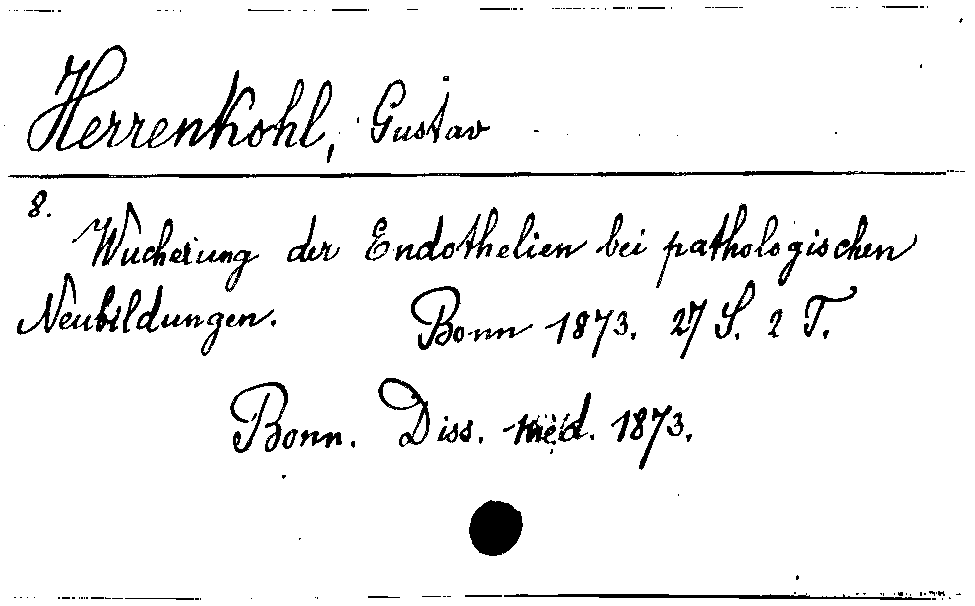 Herrenkohl, Gustav
8.
Wucherung der Endothelien bei pathologischen
Neubildungen. Bonn 1873. 27 S. 2 T.
Bonn. Diss. med. 1873.